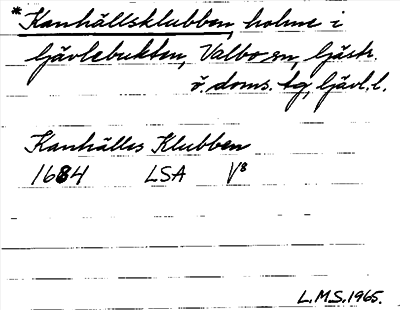 *Kanhällsklubben, holme i
Gävlebukten, Valbo sn, Gästr.
ö. doms. tg, Gävl. l.
Kanhälles Klubben
1684 LSA V8
L.M.S. 1965.